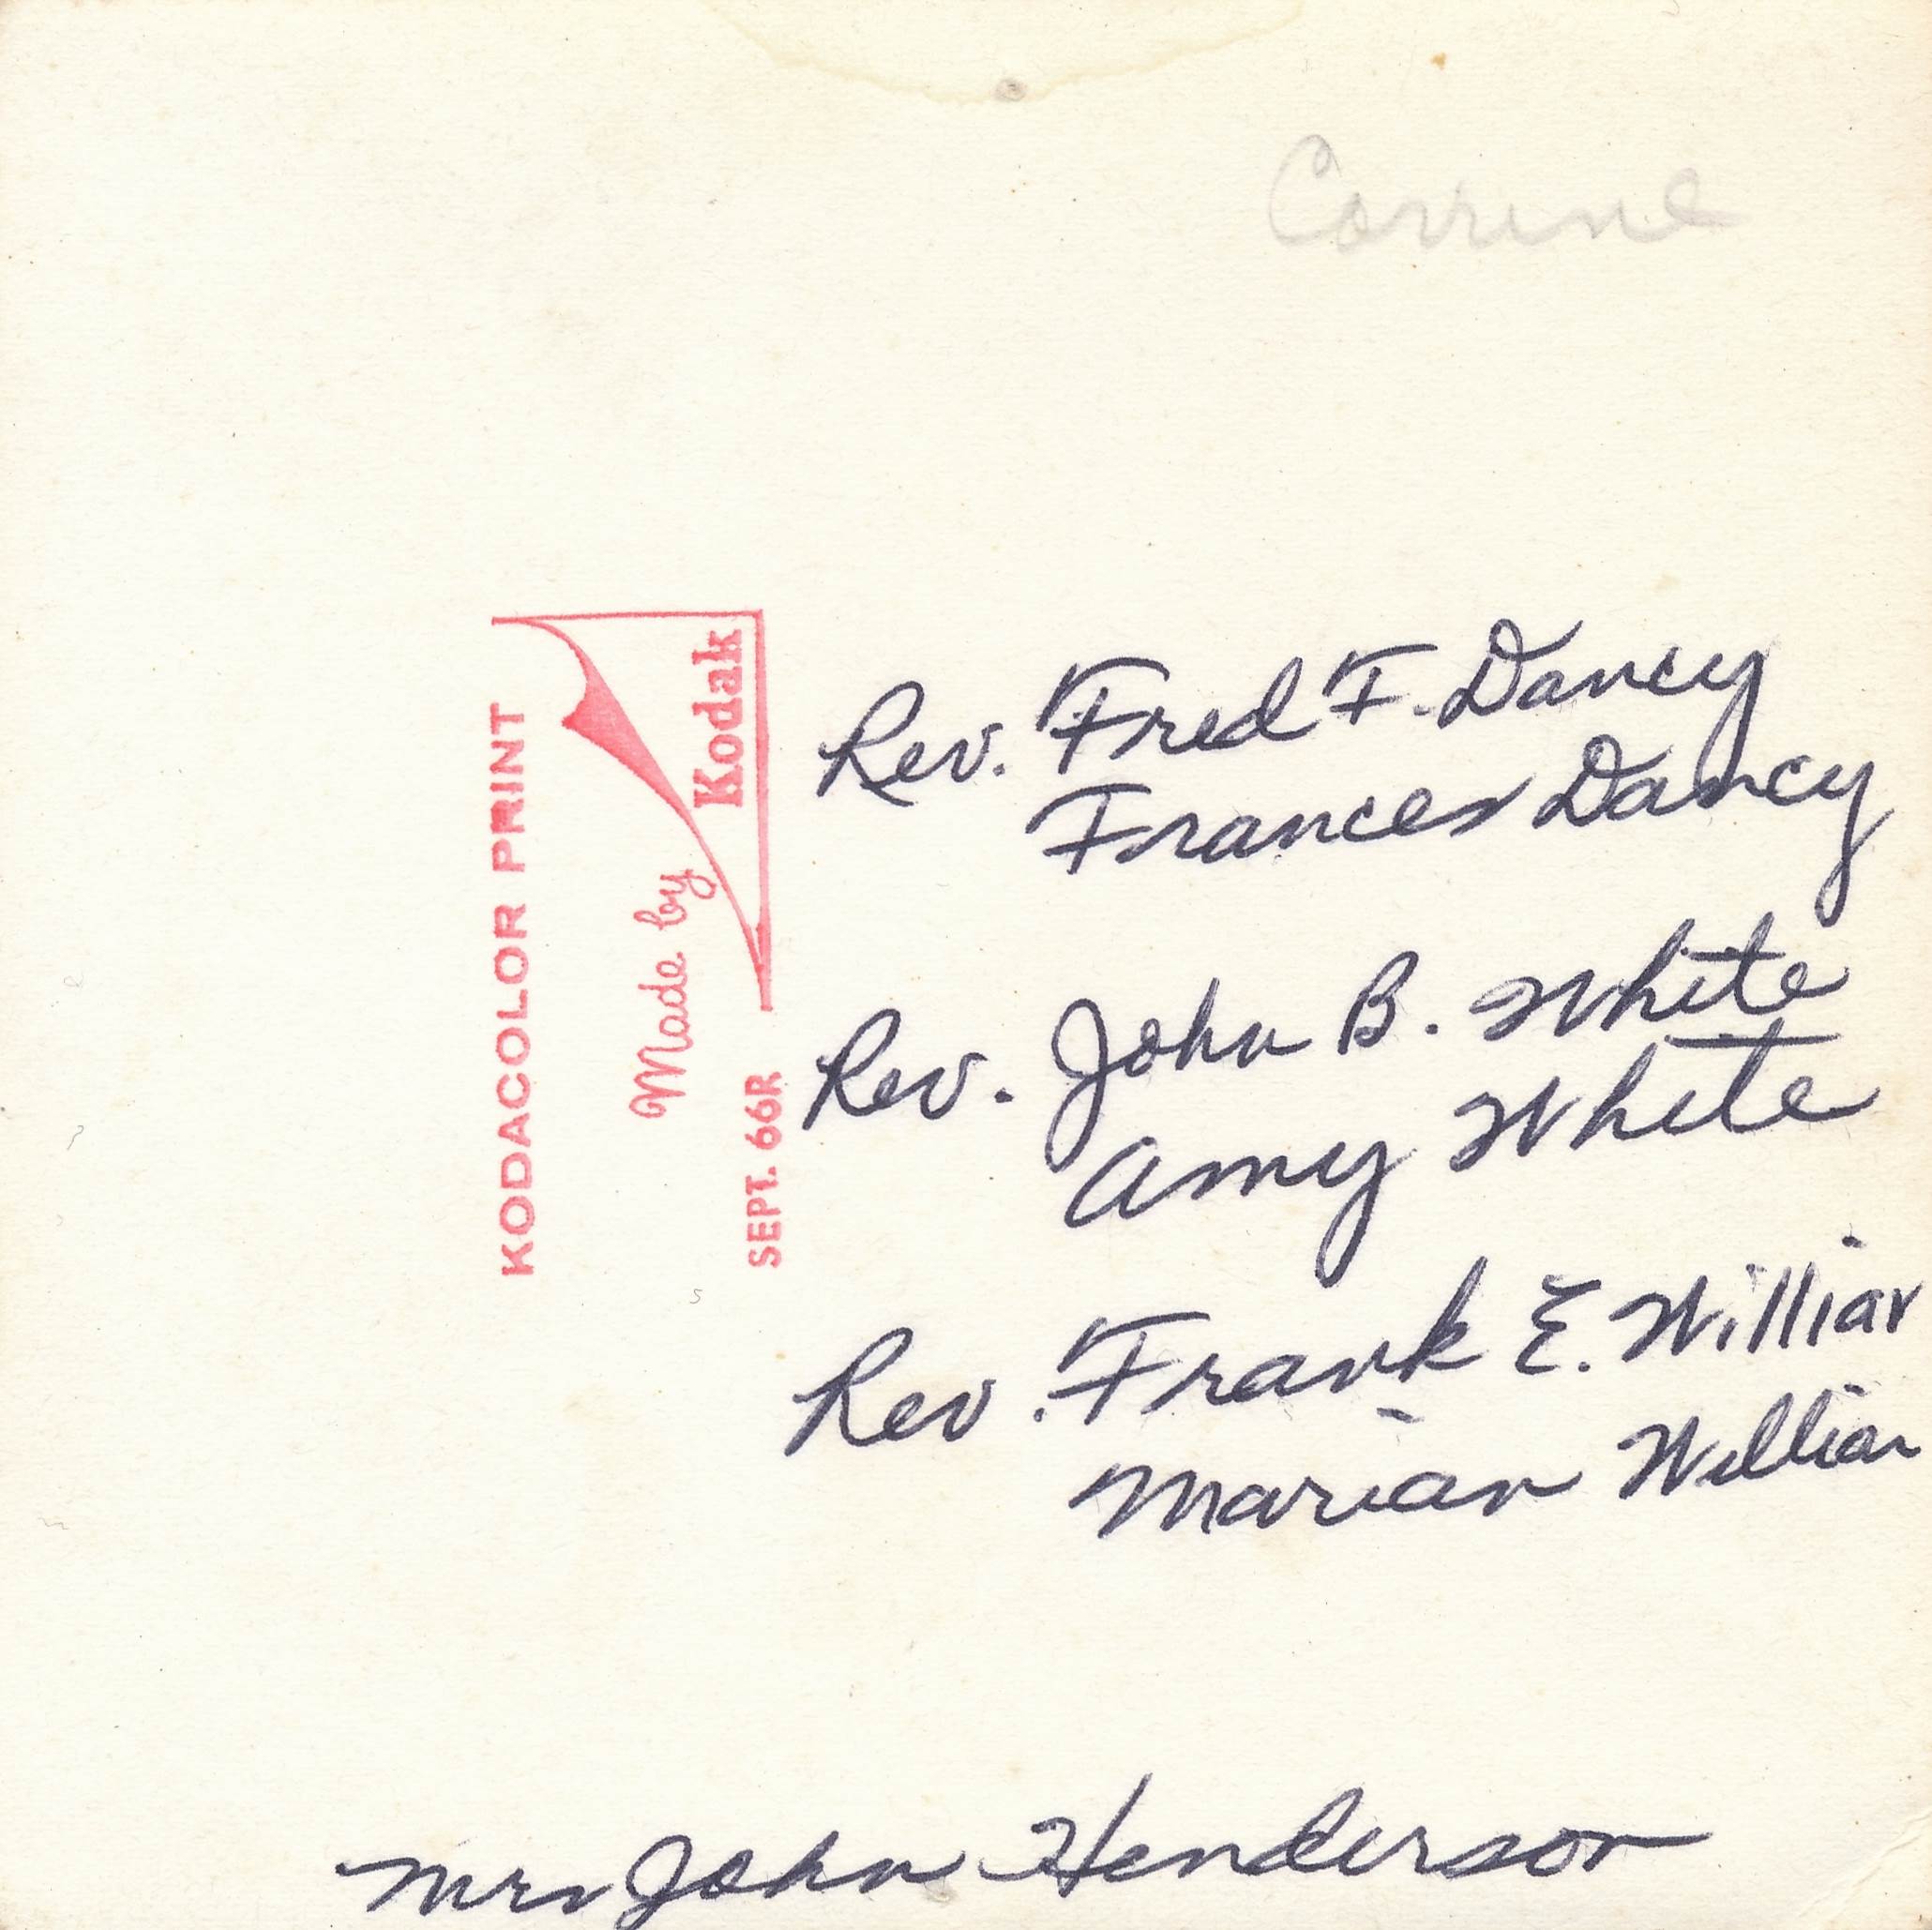 Corrine
KODACOLOR PRINT
Made by
Kodak
SEPT. 66R
Rev. Fred F. Dancy
Frances Dancy
Rev. John B. White
Amy White
Rev. Frank E. William
Marian William
Mrs John Henderson